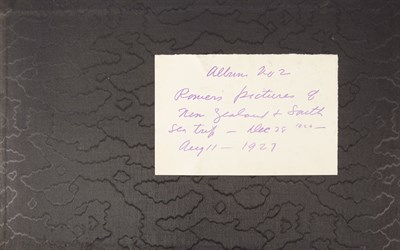 Album No 2
Powers pictures of
New Zealand & South
Sea trip - Dec 28
Aug 11 - 1927